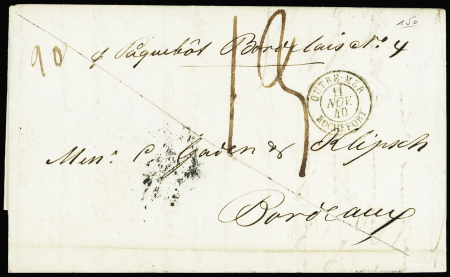 150
90
p Paquebôt Bordelais No. 4
OUTRE-MER
11
NOV.
40
ROCHEFORT
Gaden & Klipsch
Bordeaux